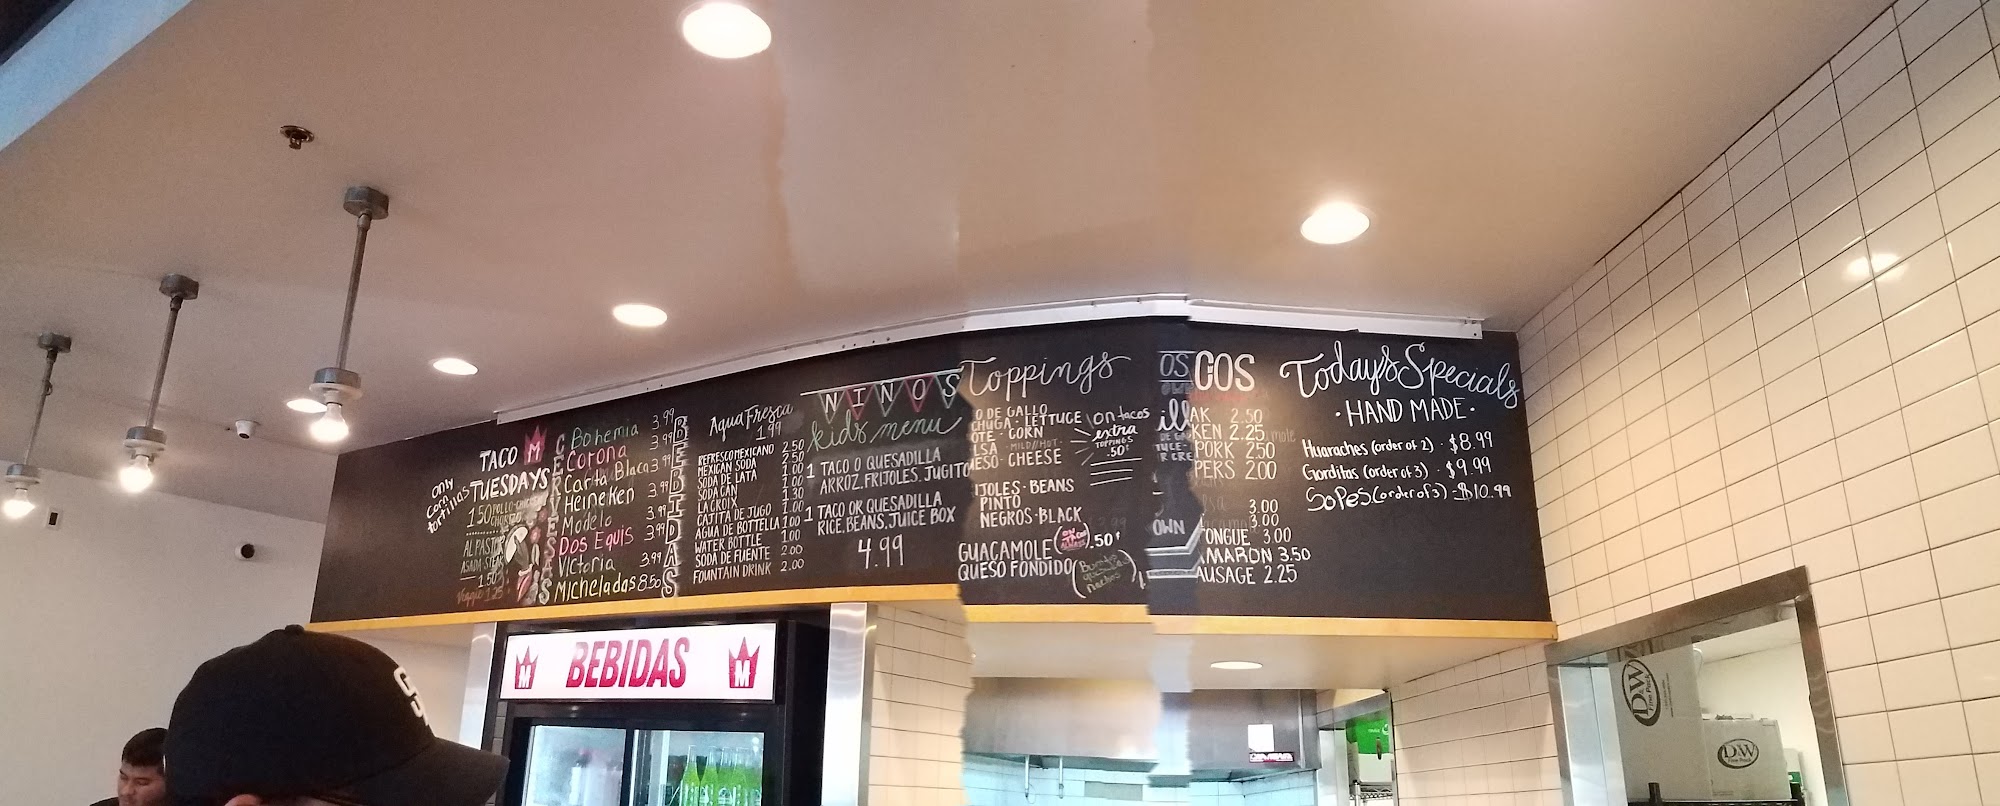 only
corn
tortillas
TACO M
TUESDAYS
1.50 POLLO-CHICKEN
AL PASTOR
ASADA-STEAK
1.50
Veggie 1.25
CERVESAS
Bohemia 3.99
Corona 3.99
Carta Blaca 3.99
Heineken 3.99
Modelo 3.99
Dos Equis
Victoria 3.99
Micheladas 8.50
BEBIDAS
Agua Fresca
1.99
REFRESCO MEXICANO 2.50
MEXICAN SODA 2.50
SODA DE LATA 1.00
SODA CAN 1.00
LA CROIX 1.30
CAJITA DE JUGO 1.00
AGUA DE BOTTELLA 1.00
WATER BOTTLE 1.00
SODA DE FUENTE 2.00
FOUNTAIN DRINK 2.00
NINOS
kids menu
1 TACO O QUESADILLA
ARROZ. FRIJOLES. JUGITO
1 TACO OR QUESADILLA
RICE. BEANS. JUICE BOX
4.99
Toppings
O DE GALLO
CHUGA · LETTUCE
OTE · CORN
LSA · MILD//HOT ·
ESO · CHEESE
IJOLES · BEANS
PINTO
NEGROS · BLACK
on tacos
extra
TOPPINGS
.50¢
GUACAMOLE .50¢
QUESO FONDIDO
OS
ill
OWN
COS
AK 2.50
KEN 2.25
PORK 2.50
PERS 2.00
3.00
3.00
TONGUE 3.00
MARON 3.50
AUSAGE 2.25
Today's Specials
· HAND MADE ·
Huaraches (order of 2) · $8.99
Gorditas (order of 3) · $9.99
Sopes (order of 3) - $10.99
M BEBIDAS M
D&W
Fine Pack
D&W
Fine Pack